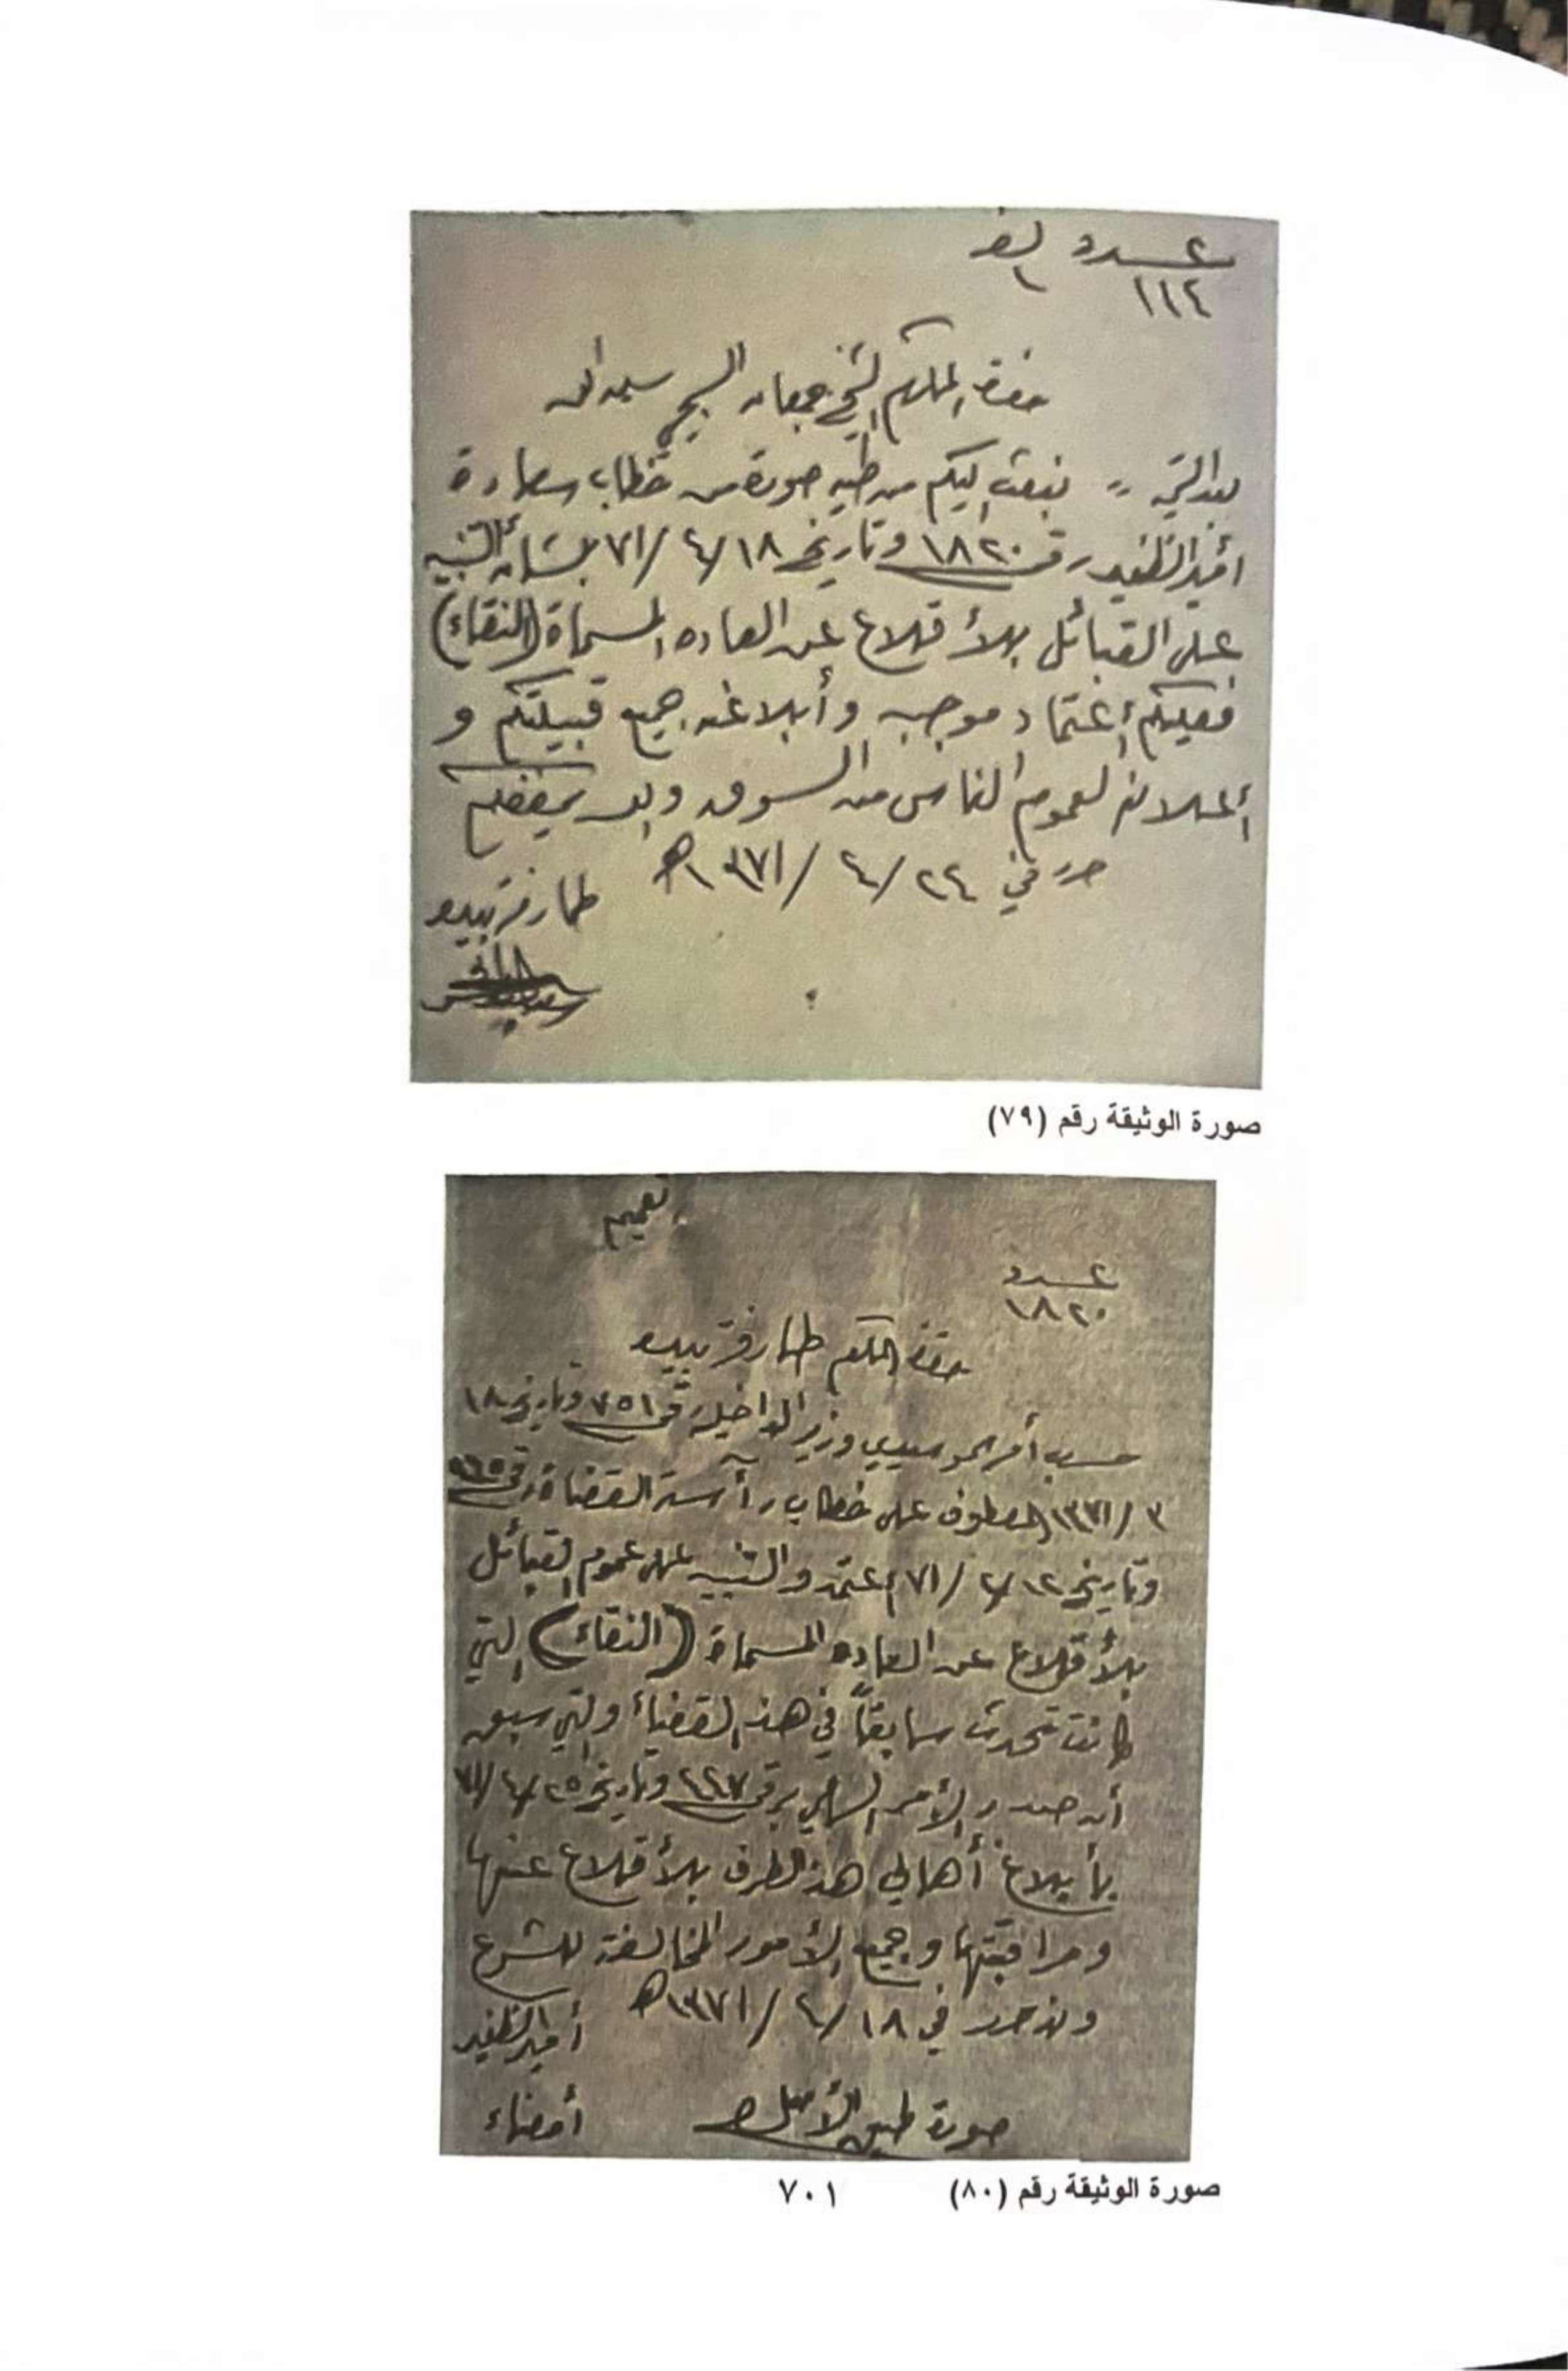 عدد لف
١١٤ ١
حضرة المكرم الشيخ جمعان السيحي سلمه الله
بعد التحية ،، نبعث إليكم من طيه صورة من خطاب سعادة
أمير الظفير رقم ١٨٢٠ وتاريخ ١٨/ ٤/ ٧١ بشأن التنبيه
على القبائل بالأقلاع عن العاده المسماة (النقاء)
فعليكم إعتماد موجبه وأبلاغه جميع قبيلتكم و
إعلانه لعموم الناس من السوق والله يحفظكم
حرر في ٢٤/ ٤/ ١٣٧١هـ
طارفة بيده
صورة الوثيقة رقم (٧٩)
تعميم
عدد
١٨٢٠
حضرة المكرم طارفة بيده
حسب أمر سمو سيدي وزير الداخلية رقم ٧٥١ وتاريخ ١٨
/٣ /١٣٧١ المعطوف على خطاب رآسة القضاة رقم
وتاريخ ١٢/ /٧١ إعتمدوا التنبيه على عموم القبائل
بالأقلاع عن العاده المسماة (النقاء) التي
كانت تحدث سابقاً في هذه القضاء والتي سبق
أن صدر الأمر السامي برقم وتاريخ ٢٥/ /٧١
بأبلاغ أهالي هذا الطرف بالأقلاع عنها
ومراقبتها وجميع الأمور المخالفة للشرع
ولذا حرر في ١٨/ ٤/ ١٣٧١هـ
أمير الظفير
صورة طبق الأصل أمضاء
صورة الوثيقة رقم (٨٠) ٧٠١